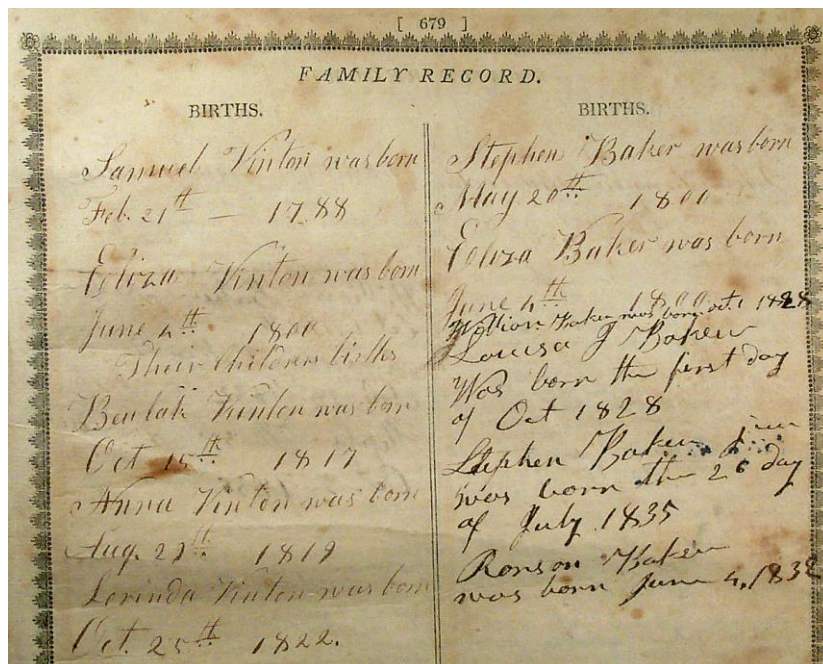 [ 679 ]
FAMILY RECORD.
BIRTHS.
Samuel Vinton was born
Feb. 21th — 1788
Eoliza Vinton was born
June 4th 1800
Their Childrens births
Beulah Vinton was born
Oct 15th 1817
Anna Vinton was born
Aug. 29th 1819
Lorinda Vinton was born
Oct. 25th 1822.
BIRTHS.
Stephen Baker was born
May 20th 1800
Eoliza Baker was born
June 4th 1800
Baker was born oct 1 1828
Louisa J Baker
Was born the first day
of Oct 1828
Stephen Baker
was born the 26 day
of July 1835
Ronson Baker
was born June 4, 1832